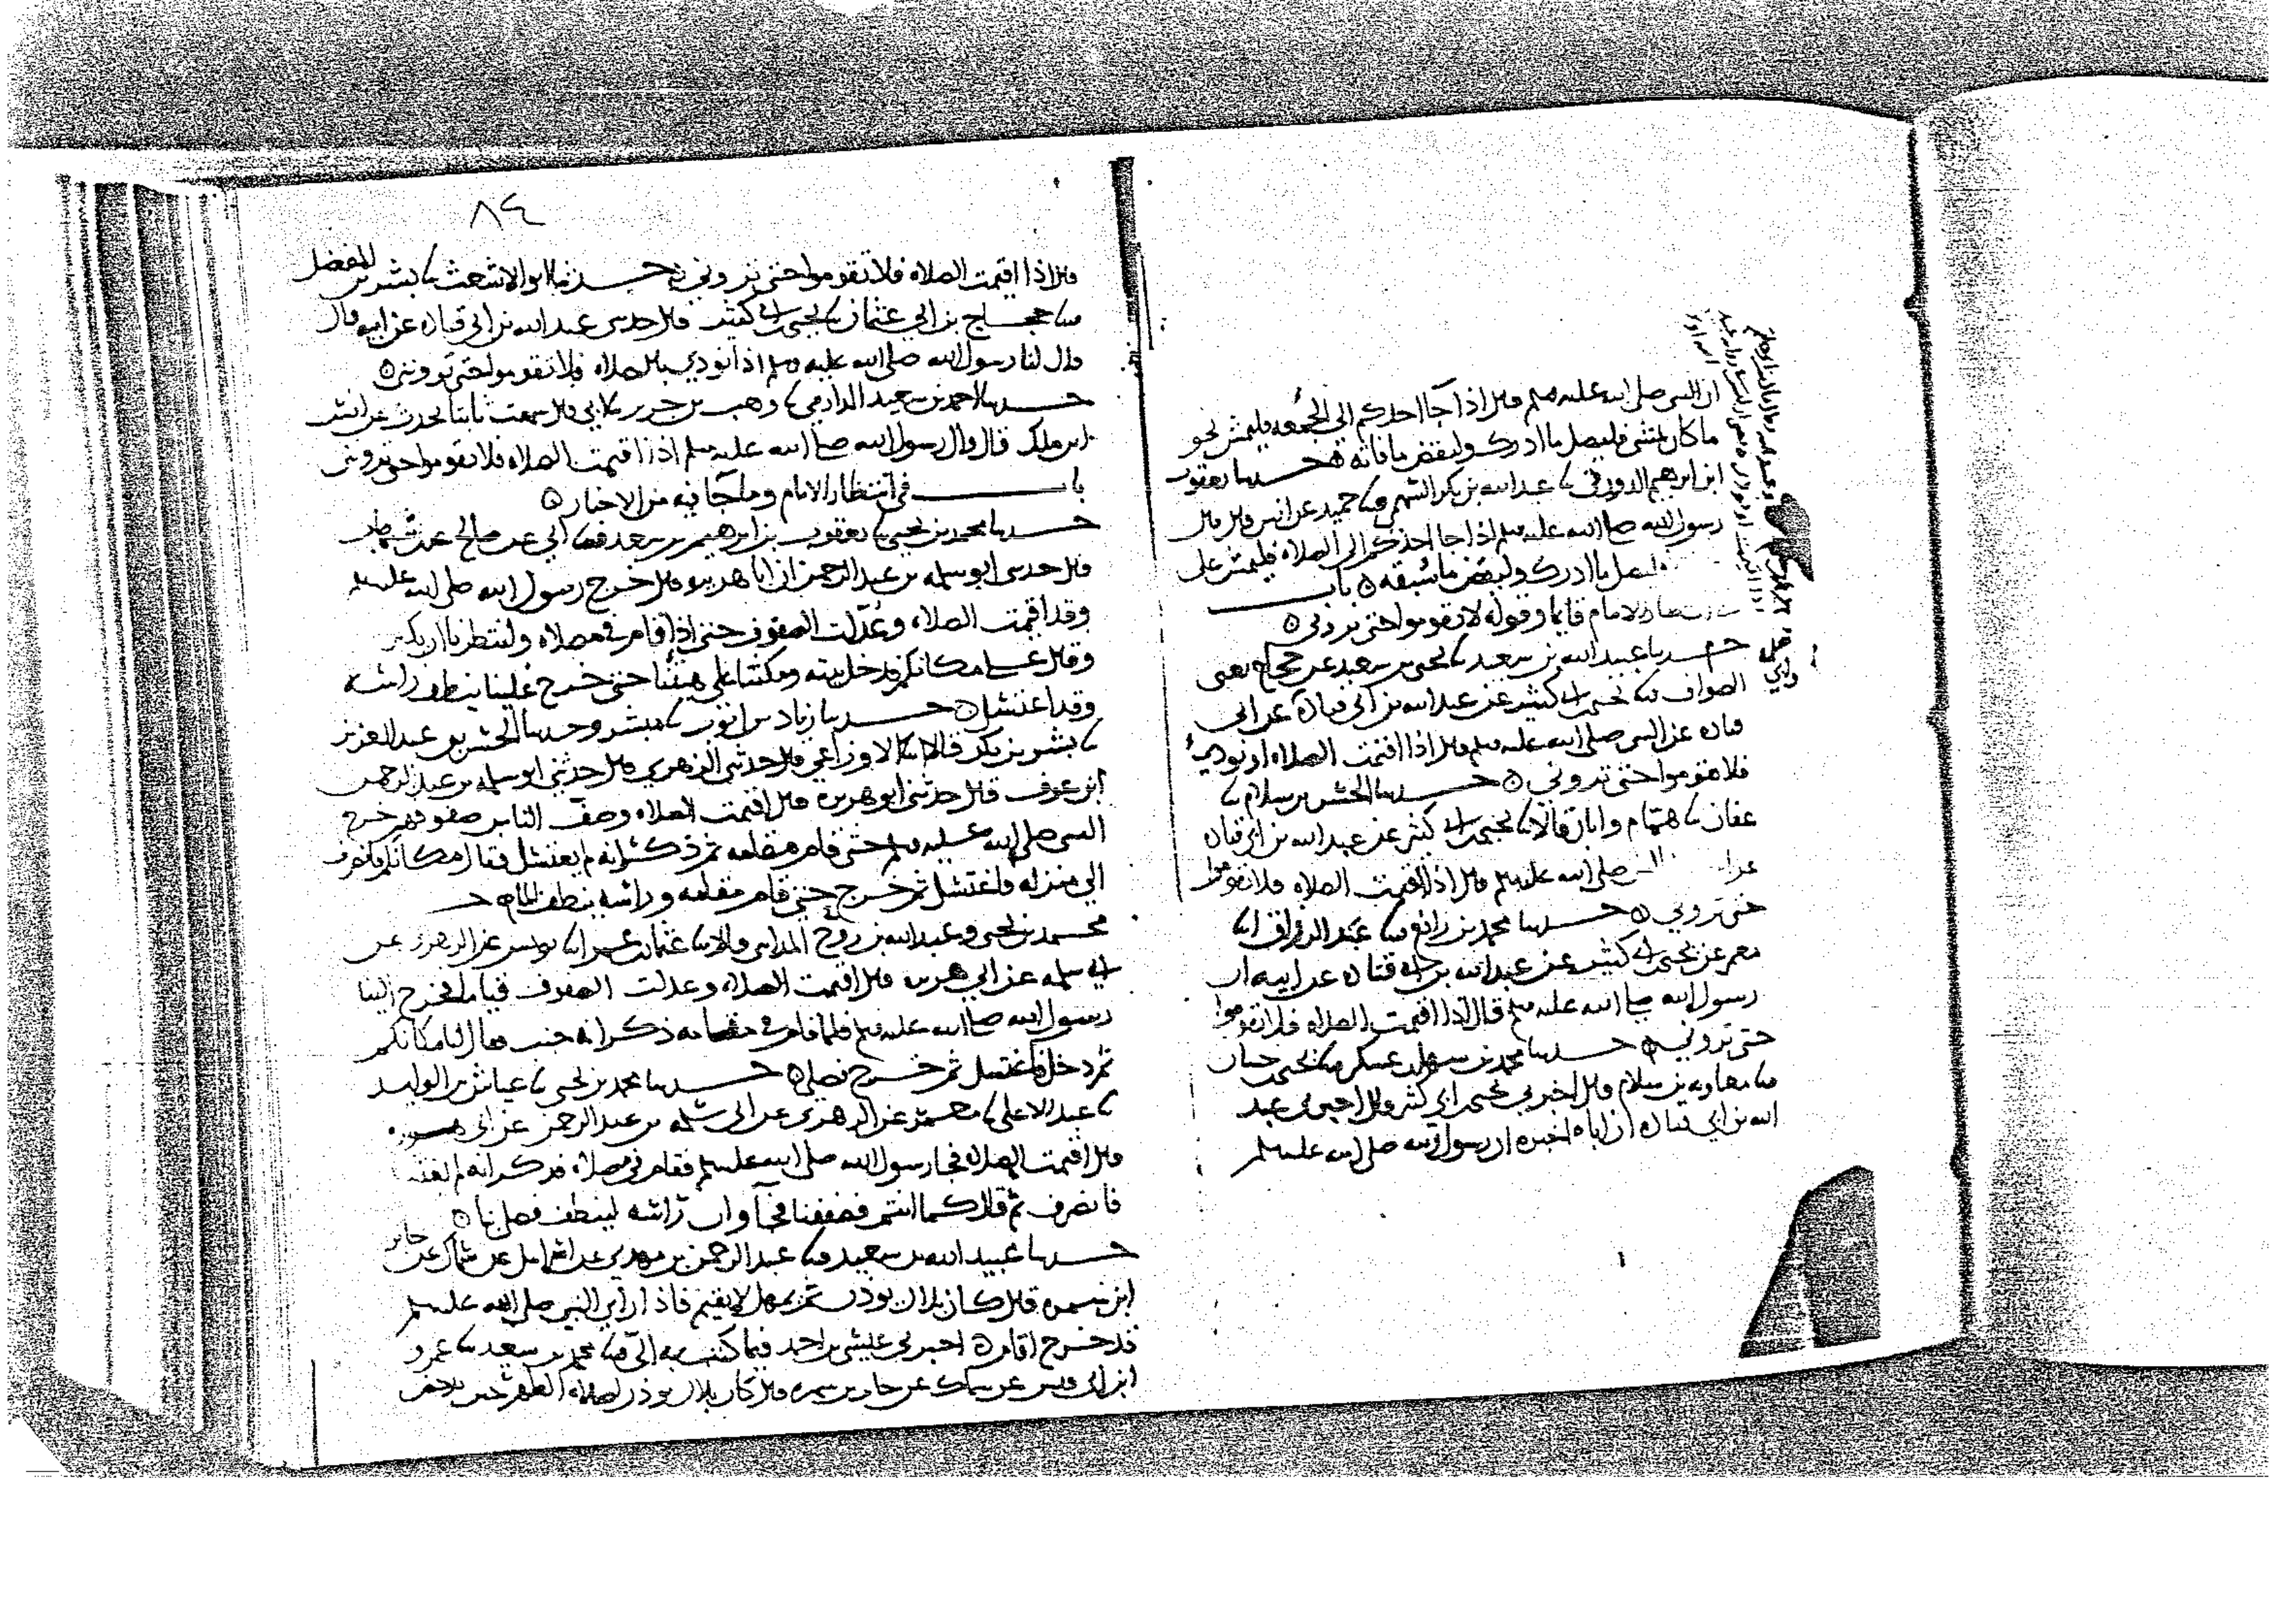 ان النبي صلى الله عليه وسلم قال اذا جا احدكم الى الجمعه فليمش نحو
ما كان يمشي فليصل ما ادرك وليقض ما فاته ه حدثنا يعقوب
ابن ابرهيم الدورقي نا عبد الله بن بكر السهمي نا حميد عن انس قال قال
رسول الله صلى الله عليه وسلم اذا جا احدكم الى الصلاه فليمش على
ما ادرك وليقض ما سبقه ه باب
الامام قايما وقوله لا تقوموا حتى تروني ه
حدثنا عبيد الله بن سعيد نا يحيى بن سعيد عن حجاج يعني
الصواف نا يحيى بن ابي كثير عن عبد الله بن ابي قتاده عن ابي
قتاده عن النبي صلى الله عليه وسلم قال اذا اقيمت الصلاه او نودي
فلا تقوموا حتى تروني ه حدثنا الحسن بن سلام نا
عفان نا همام وابان قالا نا يحيى بن ابي كثير عن عبد الله بن ابي قتاده
صلى الله عليه وسلم قال اذا اقيمت الصلاه فلا تقوموا
حتى تروني ه حدثنا محمد بن رافع نا عبد الرزاق انا
معمر عن يحيى بن ابي كثير عن عبد الله بن ابي قتاده عن ابيه ان
رسول الله صلى الله عليه وسلم قال اذا اقيمت الصلاه فلا تقوموا
حتى تروني ه حدثنا محمد بن سهل بن عسكر نا يحيى بن حسان
نا معاويه بن سلام قال اخبرني يحيى بن ابي كثير قال اخبرني عبد
الله بن ابي قتاده ان اباه اخبره ان رسول الله صلى الله عليه وسلم
٨٤
قال اذا اقيمت الصلاه فلا تقوموا حتى تروني ه حدثنا ابو الاشعث نا بشر بن المفضل
نا حجاج بن ابي عثمان نا يحيى بن ابي كثير قال حدثني عبد الله بن ابي قتاده عن ابيه قال
قال لنا رسول الله صلى الله عليه وسلم اذا نودي بالصلاه فلا تقوموا حتى تروني ه
حدثنا احمد بن سعيد الدارمي نا وهب بن جرير نا ابي قال سمعت ثابتا يحدث عن انس
ابن ملك قال قال رسول الله صلى الله عليه وسلم اذا اقيمت الصلاه فلا تقوموا حتى تروني
باب في انتظار الامام وما جا فيه من الاخبار ه
حدثنا محمد بن يحيى نا يعقوب بن ابرهيم بن سعد نا ابي عن صالح عن ابن شهاب
قال حدثني ابو سلمه بن عبد الرحمن ان ابا هريره قال خرج رسول الله صلى الله عليه وسلم
وقد اقيمت الصلاه وعدلت الصفوف حتى اذا قام في مصلاه وانتظرنا ان يكبر
وقال على مكانكم فدخل بيته ومكثنا على هيئتنا حتى خرج علينا ينطف راسه
وقد اغتسل ه حدثنا زياد بن ايوب نا مبشر وحدثنا الحسن بن عبد العزيز
نا بشر بن بكر قالا نا الاوزاعي قال حدثني الزهري قال حدثني ابو سلمه بن عبد الرحمن
ابن عوف قال حدثني ابو هريره قال اقيمت الصلاه وصف الناس صفوفهم خرج
النبي صلى الله عليه وسلم حتى قام مقامه ثم ذكر انه لم يغتسل فقال مكانكم فانصرف
الى منزله فاغتسل ثم خرج حتى قام مقامه وراسه ينطف الماء حدثنا
محمد بن يحيى وعبد الله بن روح المداىني قالا نا عثمان بن عمر انا يونس عن الزهري عن
ابي سلمه عن ابي هريره قال اقيمت الصلاه وعدلت الصفوف قياما فخرج الينا
رسول الله صلى الله عليه وسلم فلما قام في مقامه ذكر انه جنب فقال لنا مكانكم
ثم دخل فاغتسل ثم خرج فصلى ه حدثنا محمد بن يحيى نا عياش بن الوليد
نا عبد الاعلى نا معمر عن الزهري عن ابي سلمه بن عبد الرحمن عن ابي هريره
قال اقيمت الصلاه فجا رسول الله صلى الله عليه وسلم فقام في مصلاه فذكر انه لم يغتسل
فانصرف ثم قال كما انتم فصففنا فجا وان راسه لينطف فصلى بنا ه
حدثنا عبيد الله بن سعيد نا عبد الرحمن بن مهدي عن اسراىيل عن سماك عن جابر
ابن سمره قال كان بلال يوذن ثم يمهل لا يقيم فاذا راى النبي صلى الله عليه وسلم
قد خرج اقام ه اخبرني عيسى بن احمد فيما كتب به الي نا محمد بن سعيد نا عمرو
ابن ابي قيس عن سماك عن جابر بن سمره قال كان بلال يوذن لصلاه الظهر حين تدحض